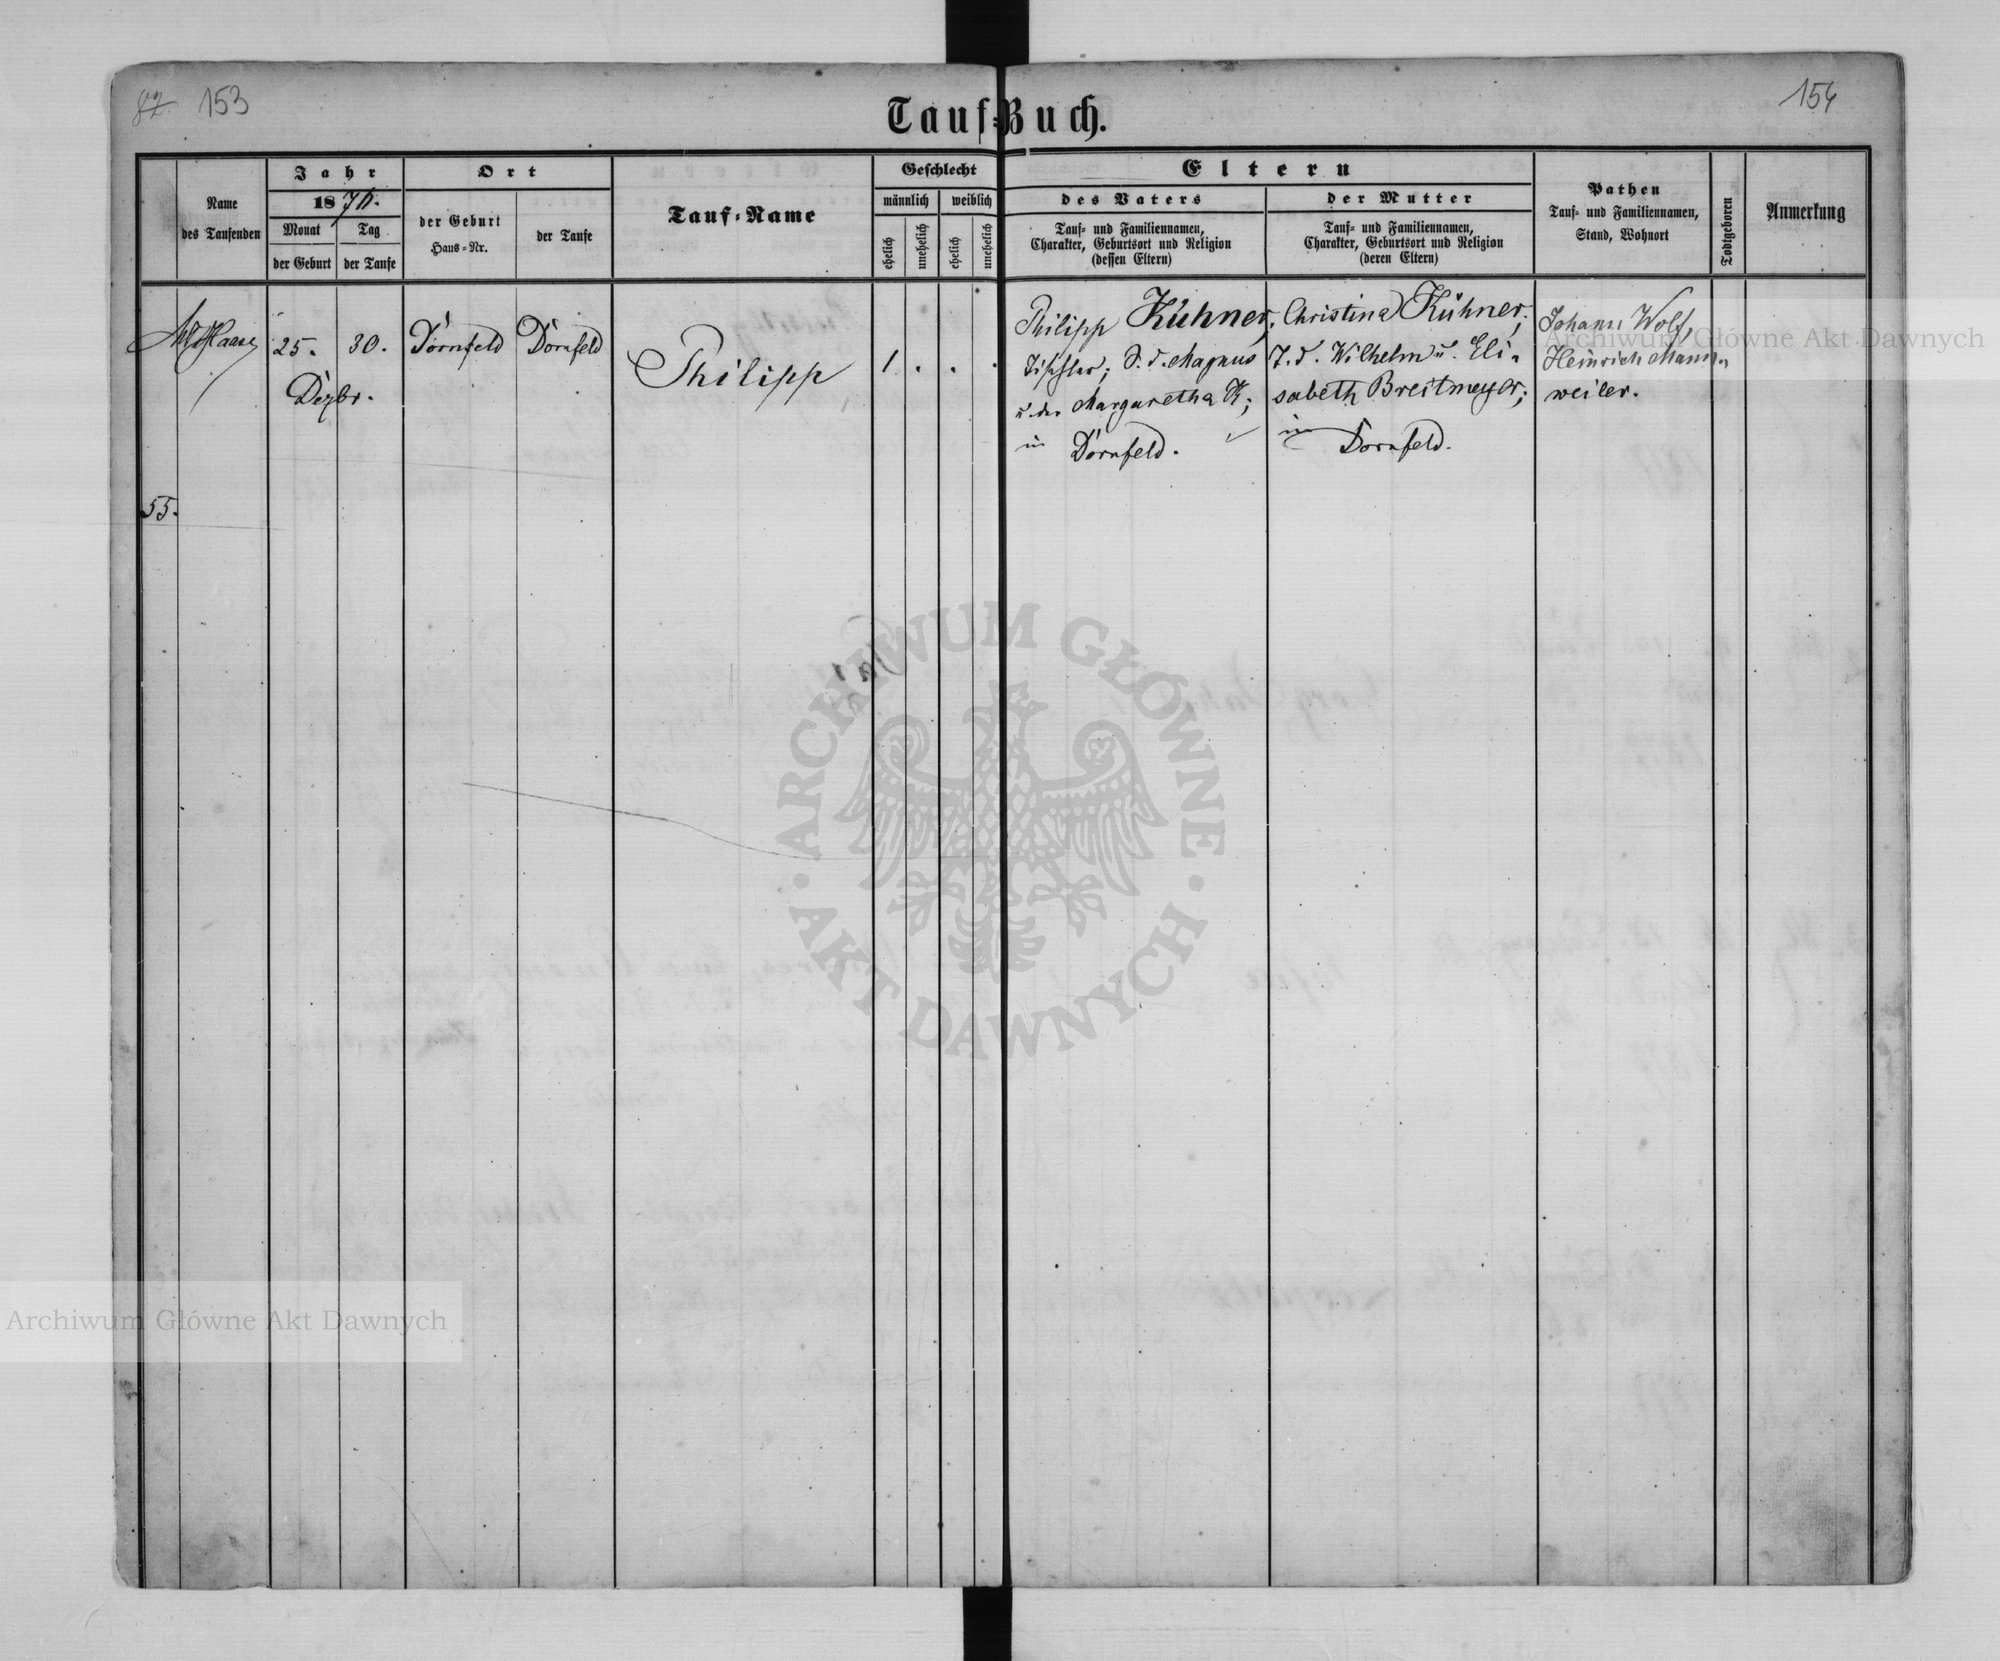 153
154
Tauf-Buch.
Name
des Taufenden
Jahr
18
Monat
der Geburt
Tag
der Taufe
Ort
der Geburt
Haus-Nr.
der Taufe
Tauf-Name
Geschlecht
männlich
weiblich
ehelich
unehelich
ehelich
unehelich
Eltern
des Vaters
Tauf- und Familiennamen,
Charakter, Geburtsort und Religion
(dessen Eltern)
der Mutter
Tauf- und Familiennamen,
Charakter, Geburtsort und Religion
(deren Eltern)
Pathen
Tauf- und Familiennamen,
Stand, Wohnort
Todtgeboren
Anmerkung
55.
Haase
25.
Dezbr.
30.
Dornfeld
Dornfeld
Philipp
1 . . .
Philipp Kühner,
Tischler; S. d. Magnus
u. der Margaretha K;
in Dornfeld.
Christina Kühner;
T. d. Wilhelm u. Eli-
sabeth Breitmeyer;
in Dornfeld.
Johann Wolf,
Heinrich Mann-
weiler.
Archiwum Główne Akt Dawnych
ARCHIWUM GŁÓWNE
AKT DAWNYCH
Archiwum Główne Akt Dawnych